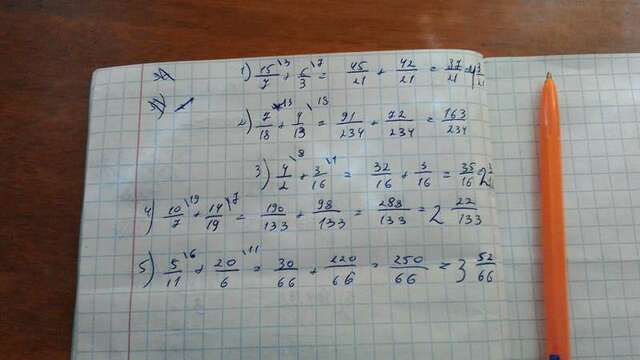 1) 15/7 \3 + 6/3 \7 = 45/21 + 42/21 = 87/21 = 4 3/21
2) 7/18 \13 + 4/13 \18 = 91/234 + 72/234 = 163/234
3) 4/2 \8 + 3/16 \1 = 32/16 + 3/16 = 35/16 2
4) 10/7 \19 + 14/19 \7 = 190/133 + 98/133 = 288/133 = 2 22/133
5) 5/11 \6 + 20/6 \11 = 30/66 + 220/66 = 250/66 = 3 52/66